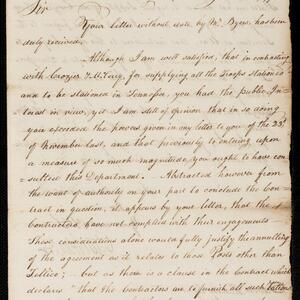 Sir
Your letter without date by Mr. Byers, has been
duly received.
Although I am well satisfied, that in contracting
with Crozier & McVeig, for supplying all the Troops stationed
and to be stationed in Tennessee, you had the public In-
terest in view, yet I am still of opinion that in so doing
you exceeded the powers given in my letter to you of the 23d.
of November last, and that previously to entering upon
a measure of so much magnitude, you ought to have con-
sulted this Department. Abstracted however from
the want of authority on your part to conclude the Con-
tract in question, it appears by your letter, that the
Contractors have not complied with their engagements
These considerations alone would fully justify the annulling
of the agreement as it relates to those Posts other than
Tellico; but as there is a clause in the Contract which
declares "that the Contractors are to furnish all such Rations